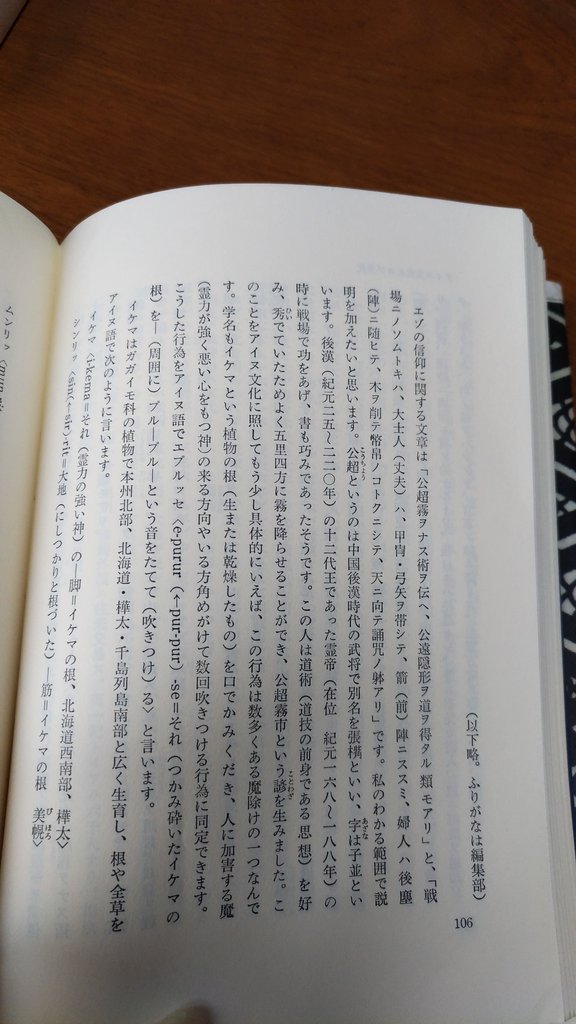 (以下略。ふりがなは編集部)
エゾの信仰に関する文章は「公超霧ヲナス術ヲ伝ヘ、公遠隠形ヲ道ヲ得タル類モアリ」と、「戦
場ニノソムトキハ、大士人(丈夫)ハ、甲冑・弓矢ヲ帯シテ、箭(前)陣ニススミ、婦人ハ後塵
(陣)ニ随ヒテ、木ヲ削テ幣帛ノコトクニシテ、天ニ向テ誦咒ノ躰アリ」です。私のわかる範囲で説
明を加えたいと思います。公超というのは中国後漢時代の武将で別名を張楷といい、字は子並とい
います。後漢(紀元二五〜二二〇年)の十二代王であった霊帝(在位 紀元一六八〜一八八年)の
時に戦場で功をあげ、書も巧みであったそうです。この人は道術(道技の前身である思想)を好
み、秀でていたためよく五里四方に霧を降らせることができ、公超霧市という諺を生みました。こ
のことをアイヌ文化に照してもう少し具体的にいえば、この行為は数多くある魔除けの一つなんで
す。学名もイケマという植物の根(生または乾燥したもの)を口でかみくだき、人に加害する魔
(霊力が強く悪い心をもつ神)の来る方向やいる方角めがけて数回吹きつける行為に同定できます。
こうした行為をアイヌ語でエプルッセ〈e-purur(←pur-pur)-se=それ(つかみ砕いたイケマの
根)を―(周囲に)プル―プル―という音をたてて(吹きつけ)る〉と言います。
イケマはガガイモ科の植物で本州北部、北海道・樺太・千島列島南部と広く生育し、根や全草を
アイヌ語で次のように言います。
イケマ〈ikema=それ(霊力の強い神)の―脚=イケマの根、北海道西南部、樺太〉
シンリッ〈sin(←sir)rit=大地(にしっかりと根づいた)―筋=イケマの根 美幌〉
ムンリ
106